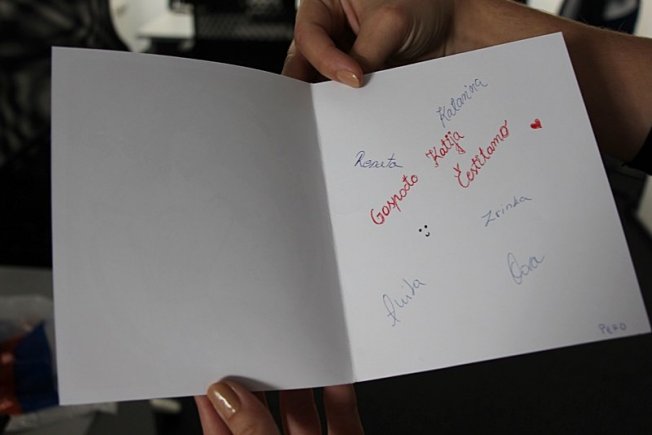 Katarina
Renata
Gospođo Katija
Čestitamo
Zrinka
Dora
Anita
PERO